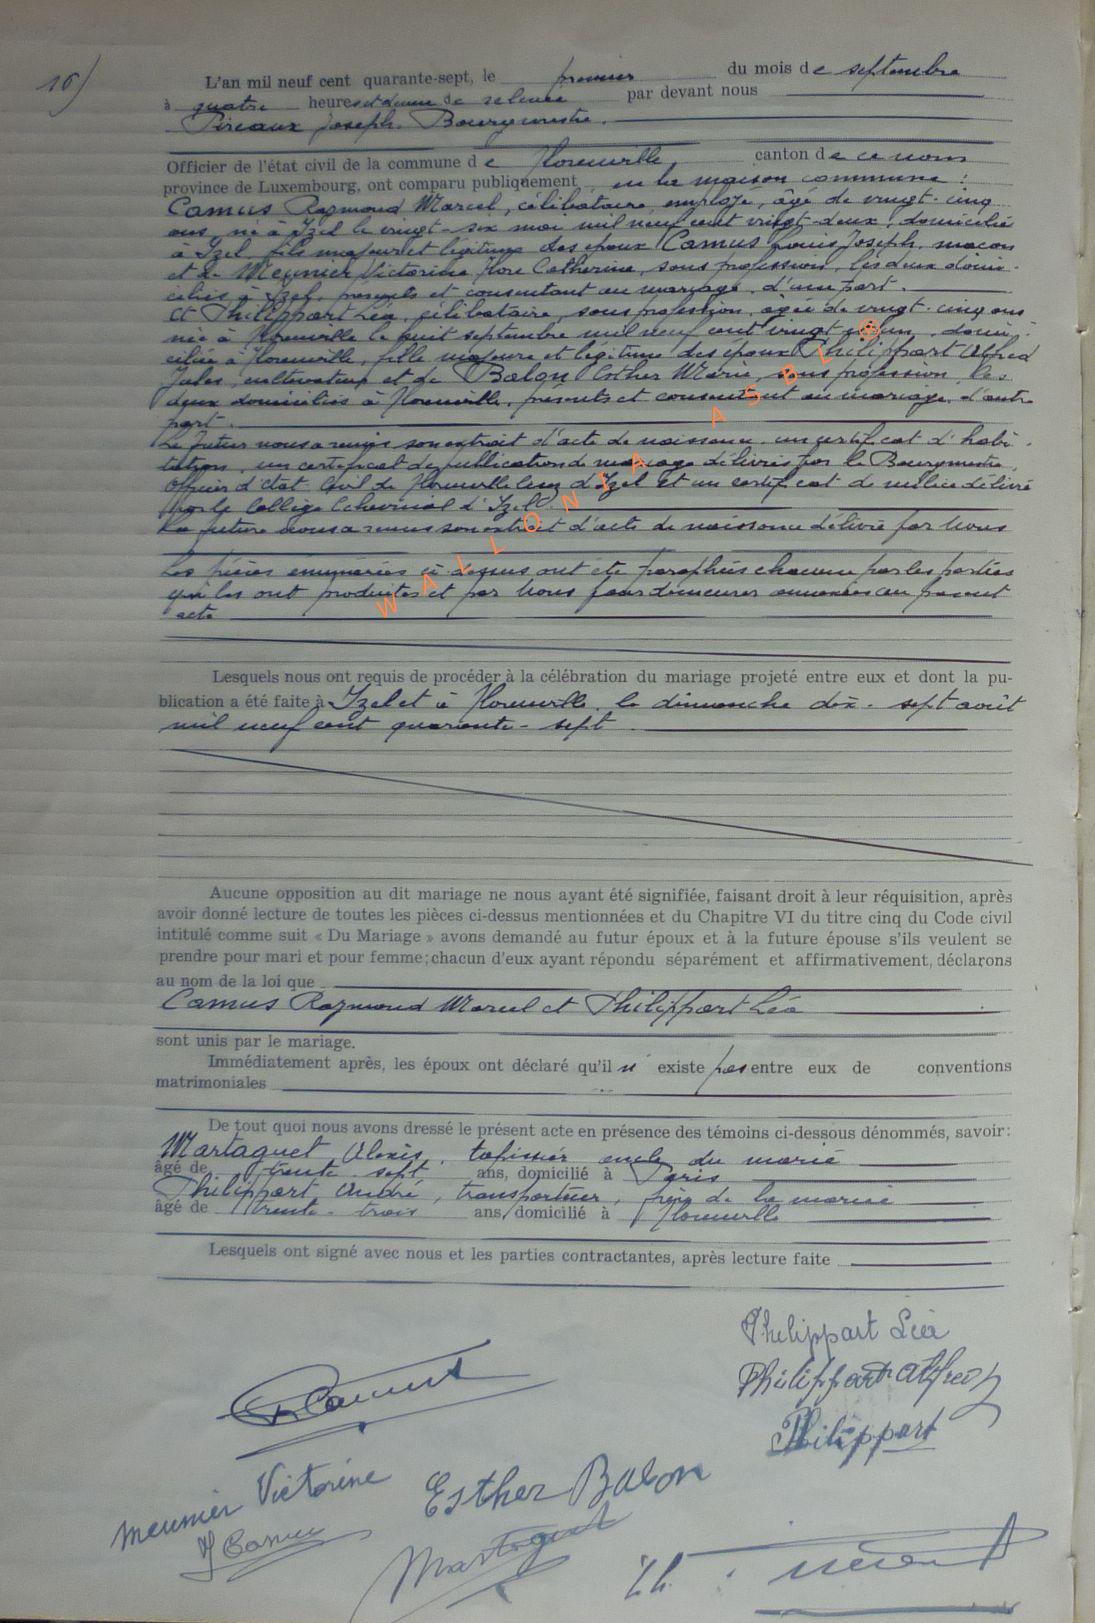 16)
L'an mil neuf cent quarante-sept, le premier du mois de septembre
à quatre heures et demie de relevée par devant nous
Pireaux Joseph. Bourgmestre.
Officier de l'état civil de la commune de Florenville, canton de ce nom
province de Luxembourg, ont comparu publiquement en la maison commune :
Camus Raymond Marcel, célibataire employé, âgé de vingt-cinq
ans, né à Izel le vingt-six mai mil neuf cent vingt-deux, domicilié
à Izel, fils majeur et légitime des époux Camus Louis Joseph, maçon
et de Meunier Victorine Flore Catherine, sans profession, les deux domi-
ciliés à Izel, présents et consentant au mariage, d'une part.
Et Philippart Léa, célibataire, sans profession, âgée de vingt-cinq ans
née à Florenville le huit septembre mil neuf cent vingt et un, domi-
ciliée à Florenville, fille majeure et légitime des époux Philippart Alfred
Jules, cultivateur et de Balon Esther Marie, sans profession, les
deux domiciliés à Florenville, présents et consentant au mariage, d'autre
part.
Le futur nous a remis son extrait d'acte de naissance, un certificat d'habi-
tation, un certificat de publication de mariage délivrés par le Bourgmestre,
Officier d'état Civil de d'Izel et un certificat de milice délivré
par le Collège Echevinal d'Izel.
La future nous a remis son extrait d'acte de naissance délivré par Nous
Les pièces énumérées ci-dessus ont été paraphées chacune par les parties
qui les ont produites et par Nous pour demeurer annexées au présent
acte
WALLONIA ASBL ®
Lesquels nous ont requis de procéder à la célébration du mariage projeté entre eux et dont la pu-
blication a été faite à Izel et à Florenville, le dimanche dix-sept août
mil neuf cent quarante-sept
Aucune opposition au dit mariage ne nous ayant été signifiée, faisant droit à leur réquisition, après
avoir donné lecture de toutes les pièces ci-dessus mentionnées et du Chapitre VI du titre cinq du Code civil
intitulé comme suit « Du Mariage » avons demandé au futur époux et à la future épouse s'ils veulent se
prendre pour mari et pour femme; chacun d'eux ayant répondu séparément et affirmativement, déclarons
au nom de la loi que
Camus Raymond Marcel et Philippart Léa
sont unis par le mariage.
Immédiatement après, les époux ont déclaré qu'il n'existe pas entre eux de conventions
matrimoniales
De tout quoi nous avons dressé le présent acte en présence des témoins ci-dessous dénommés, savoir:
Martaguet Alexis, tapissier oncle du marié
âgé de trente-sept ans, domicilié à Paris
Philippart André, transporteur, frère de la mariée
âgé de trente-trois ans, domicilié à Florenville
Lesquels ont signé avec nous et les parties contractantes, après lecture faite
Philippart Léa
R Camus
Philippart Alfred J
Philippart
Meunier Victorine
Esther Balon
J Camus
Martaguet